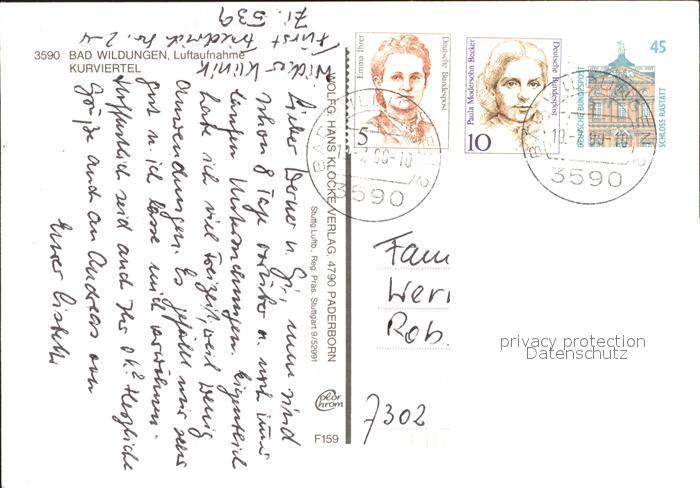 3590 BAD WILDUNGEN, Luftaufnahme
KURVIERTEL
Zi. 539
Fürst Friedrich Str. 2-4
Klinik
Lieber Werner u. nun sind
schon 8 Tage vorüber u. noch immer
laufen Untersuchungen. Eigentlich
habe ich viel Freizeit, weil wenig
Anwendungen. Es gefällt mir sehr
gut u. ich lasse mich verwöhnen.
Hoffentlich seid auch Ihr ok? Herzliche
Grüße auch an Andreas von
Eurer Lisbeth
WOLFG. HANS KLOCKE VERLAG, 4790 PADERBORN
Stuttg. Luftb., Reg. Präs. Stuttgart 9/52991
color
chrom
F159
Emma Ihrer
Deutsche Bundespost
5
Paula Modersohn-Becker
Deutsche Bundespost
10
45
DEUTSCHE BUNDESPOST
SCHLOSS RASTATT
BAD WILDUNGEN
3590
BAD WILDUNGEN
3590
Fam
Wern
Rob.
7302
privacy protection
Datenschutz